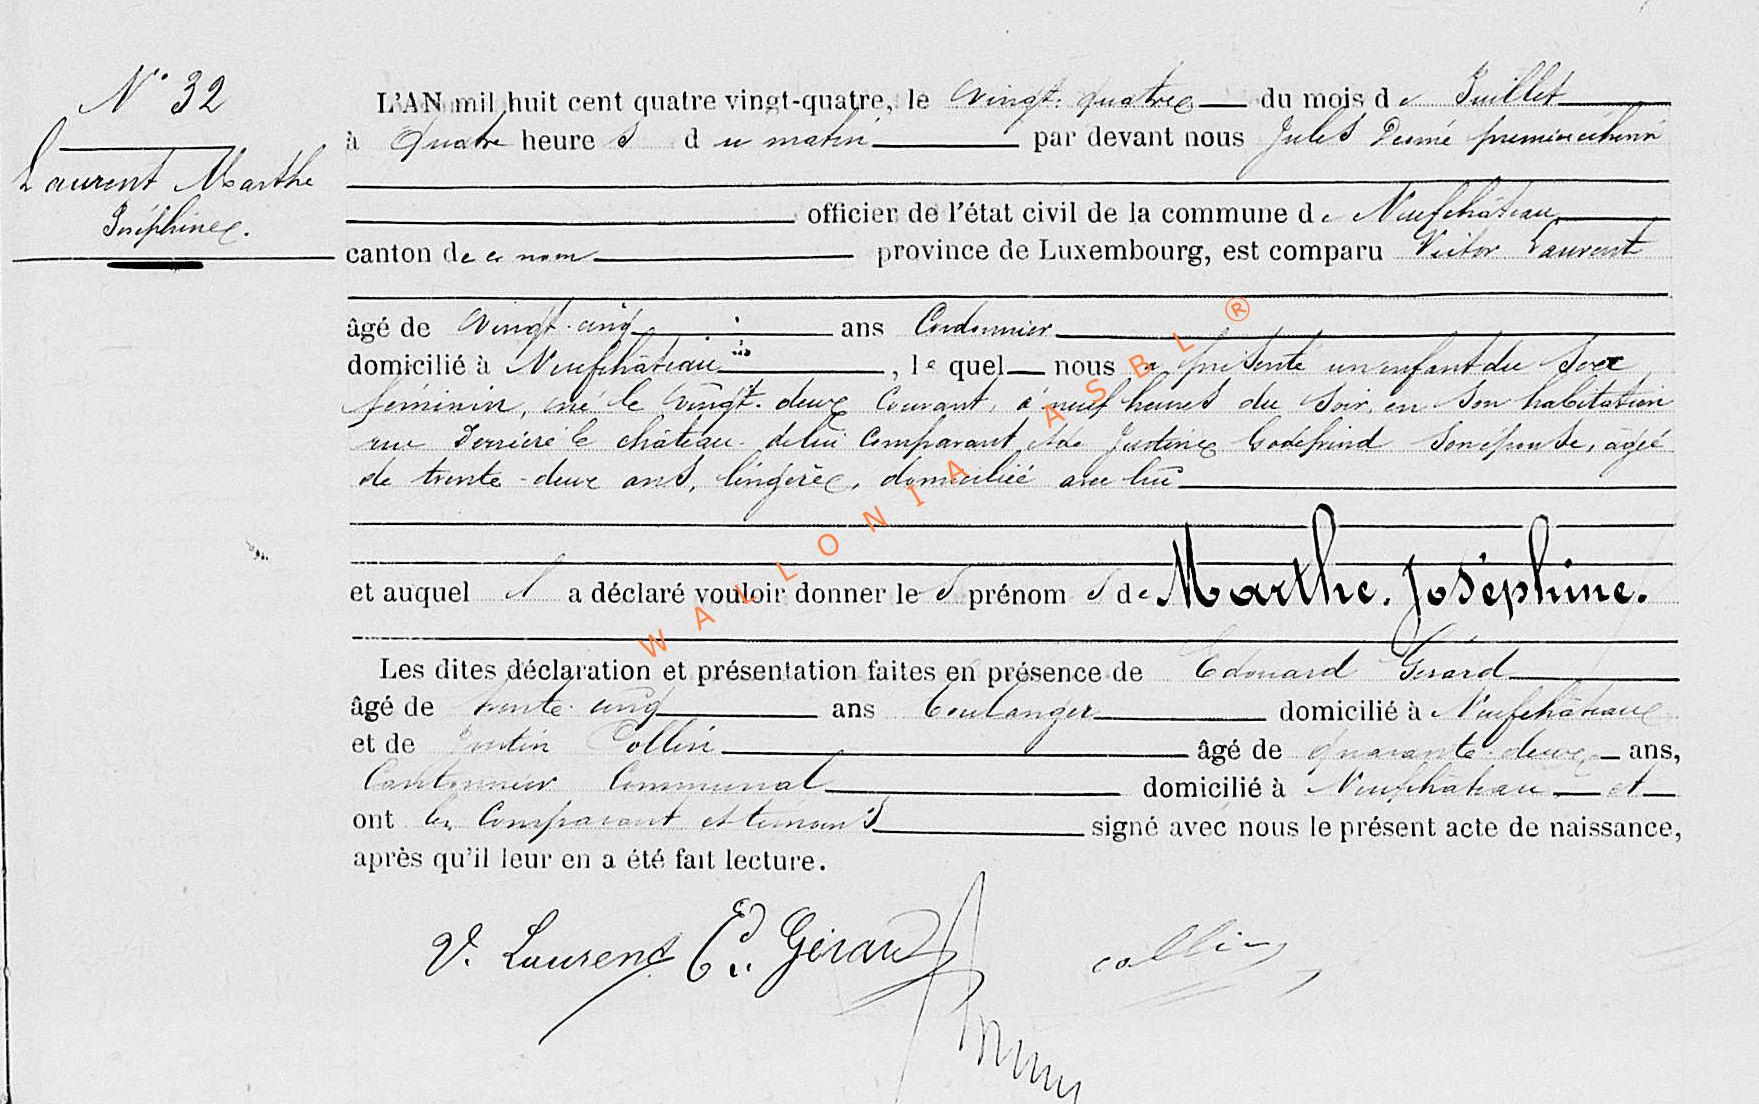 N° 32
Laurent Marthe
Joséphine.
L'AN mil huit cent quatre vingt-quatre, le vingt-quatre du mois de Juillet
à quatre heures du matin par devant nous Jules premier échevin
officier de l'état civil de la commune de Neufchâteau
canton de ce nom province de Luxembourg, est comparu Victor Laurent
âgé de vingt-cinq ans Cordonnier
domicilié à Neufchâteau, lequel nous a présenté un enfant du sexe
féminin, né le vingt-deux courant, à neuf heures du soir, en son habitation
rue Derrière le château de lui comparant et de Justine Godefrind son épouse, agée
de trente-deux ans, lingère, domiciliée avec lui
et auquel il a déclaré vouloir donner les prénoms de Marthe. Joséphine.
Les dites déclaration et présentation faites en présence de Edouard Gérard
âgé de trente-cinq ans boulanger domicilié à Neufchâteau
et de Collin âgé de quarante-deux ans,
Cantonnier Communal domicilié à Neufchâteau et
ont les Comparant et témoins signé avec nous le présent acte de naissance,
après qu'il leur en a été fait lecture.
V. Laurent Ed. Gérard collin
WALLONIA ASBL ®